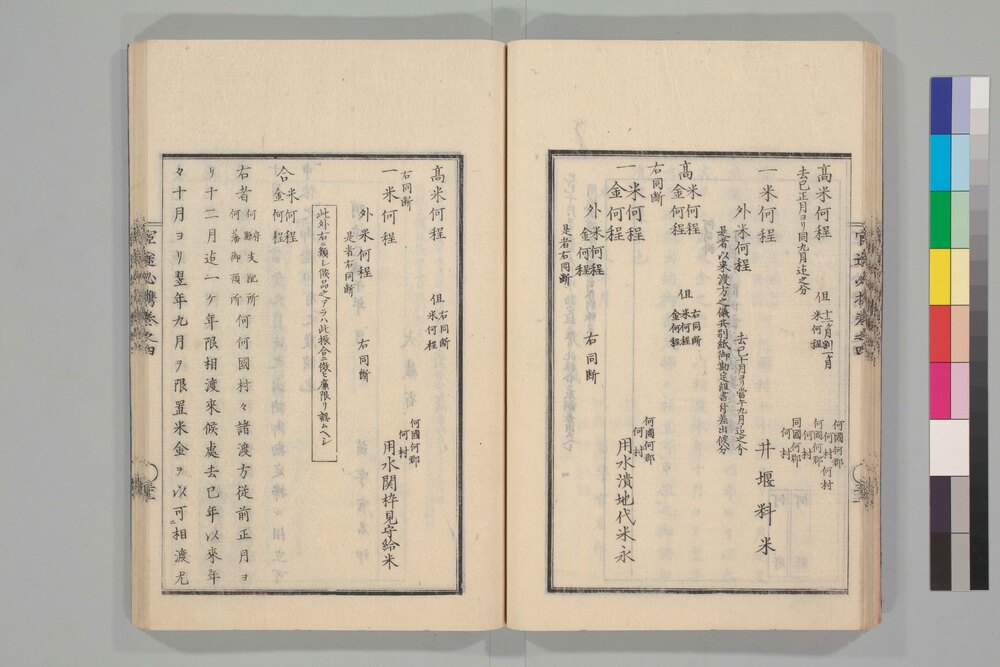 高米何程　但　十二ヶ月割一ヶ月
米何程
何國何郡
何村
何村
去巳正月ヨリ同九月迄之分
何國何郡
何村
同國何郡
何村
一米何程　井堰料米
去巳十月ヨリ當午九月迄之分
外米何程
是者以来渡方之儀共別紙御勘定組書付差出候分
高米何程
金何程
但　右同断
米何程
金何程
右同断
何國何郡
何村
一米何程
金何程
用水潰地代米永
外米何程
金何程
右同断
是者右同断
高米何程　但　右同断
米何程
右同断
何國何郡
何村
一米何程　用水関枠見守給米
外米何程　右同断
是者右同断
此外右ニ類シ候品之アラハ此振合ニ倣ヒ廉限リ認ムヘシ
合米何程
金何程
右者何府
何縣支配所
何藩御預所
何何國村々諸渡方従前正月ヨ
リ十二月迄一ケ年限相渡來候處去巳年以來年
々十月ヨリ翌年九月ヲ限置米金ヲ以可相渡尤
官途必携巻之四